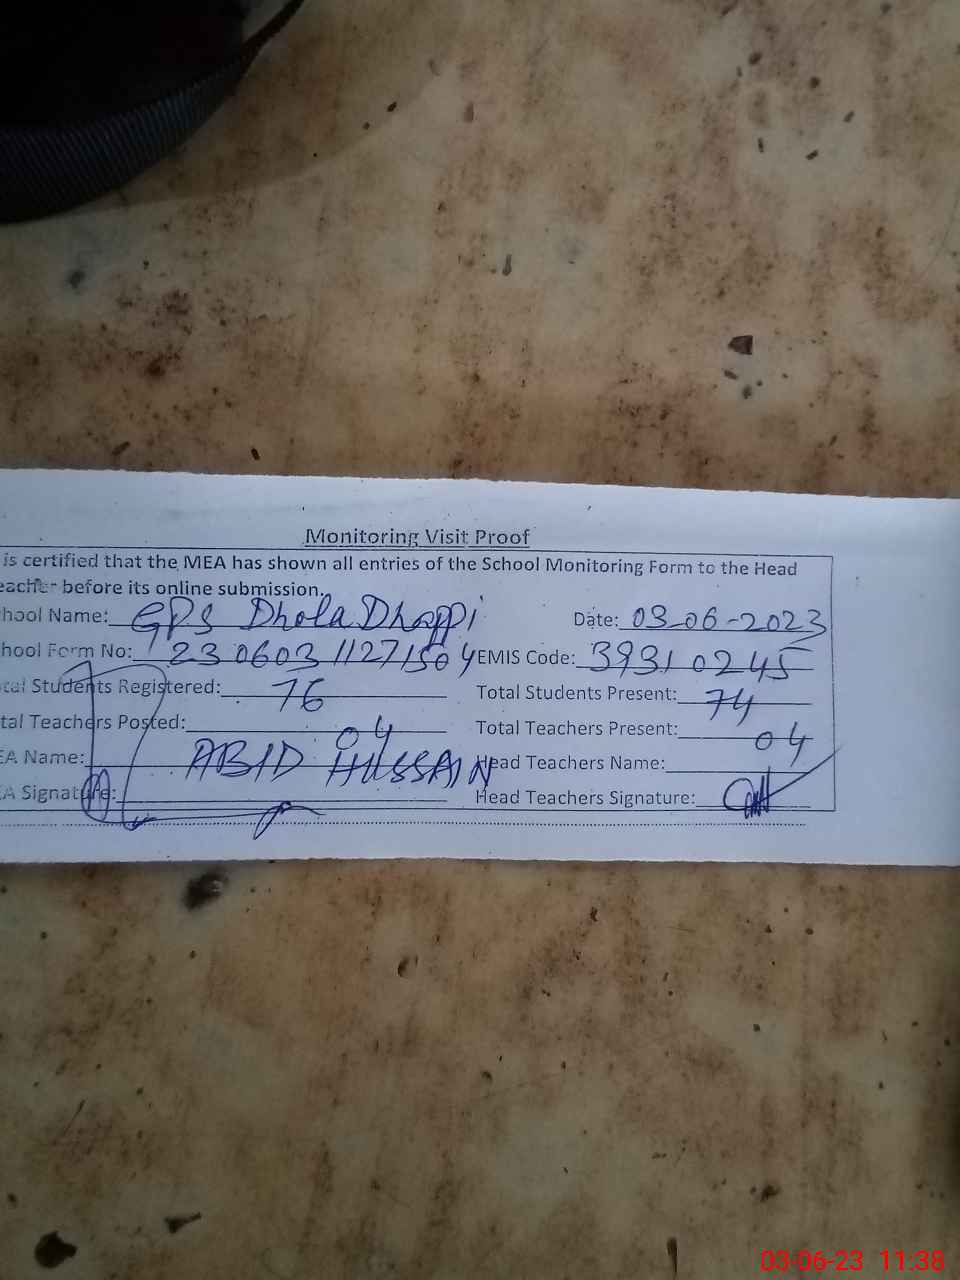 Monitoring Visit Proof
is certified that the MEA has shown all entries of the School Monitoring Form to the Head
eacher before its online submission.
hool Name: GPS Dhola Dhappi Date: 03-06-2023
hool Form No: 23060311271504 EMIS Code: 39310245
tal Students Registered: 76 Total Students Present: 74
tal Teachers Posted: 04 Total Teachers Present: 04
EA Name: ABID HUSSAIN Head Teachers Name:
EA Signature: Head Teachers Signature:
03-06-23 11:38